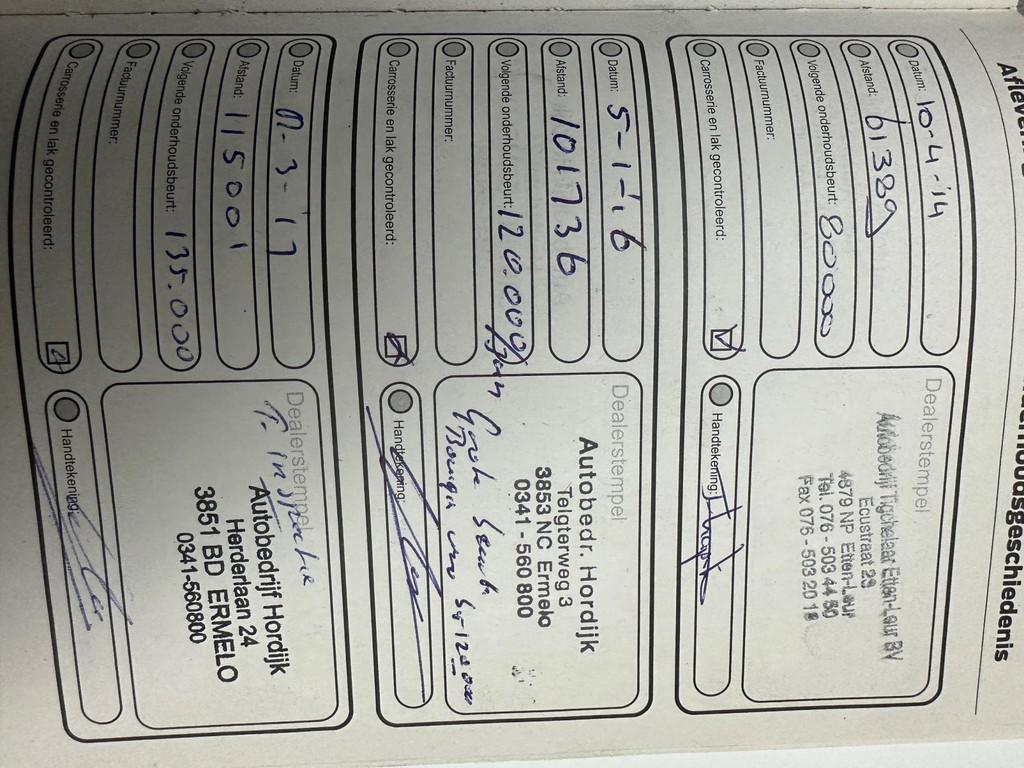 houdsgeschiedenis
Datum: 10-4-'14
Afstand: 61389
Volgende onderhoudsbeurt: 80000
Factuurnummer:
Carrosserie en lak gecontroleerd:
Dealerstempel
Autobedrijf Tigchelaar Etten-Leur BV
Ecustraat 23
4879 NP Etten-Leur
Tel. 076 - 503 44 50
Fax 076 - 503 20 18
Handtekening:
Datum: 5-1-16
Afstand: 101736
Volgende onderhoudsbeurt: 120.000
Factuurnummer:
Carrosserie en lak gecontroleerd:
Dealerstempel
Autobedr. Hordijk
Telgterweg 3
3853 NC Ermelo
0341 - 560 800
Grote beurt
Handtekening:
Datum: 3-17
Afstand: 115001
Volgende onderhoudsbeurt: 135.000
Factuurnummer:
Carrosserie en lak gecontroleerd:
Dealerstempel
inspectie
Autobedrijf Hordijk
Herderlaan 24
3851 BD ERMELO
0341-560800
Handtekening: